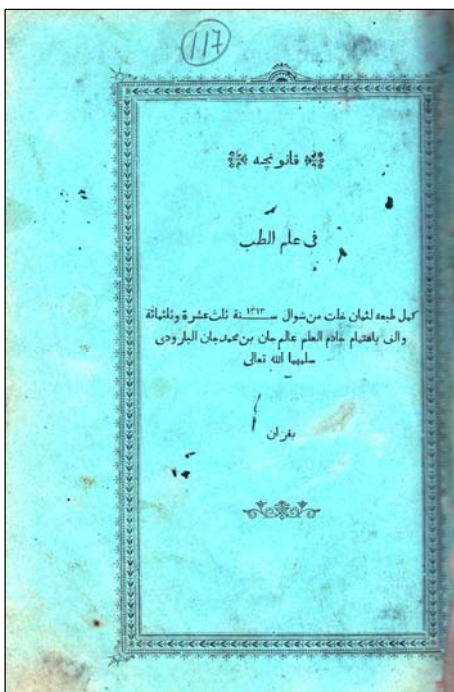 117
قانونچه
فى علم الطب
كمل طبعه لثمان خلت من شوال سـنة ١٣١٣ ثلث عشرة وثلثمائة
والف باهتمام خادم العلم عالم جان بن محمد جان البارودى
سلمهما الله تعالى
بقزان